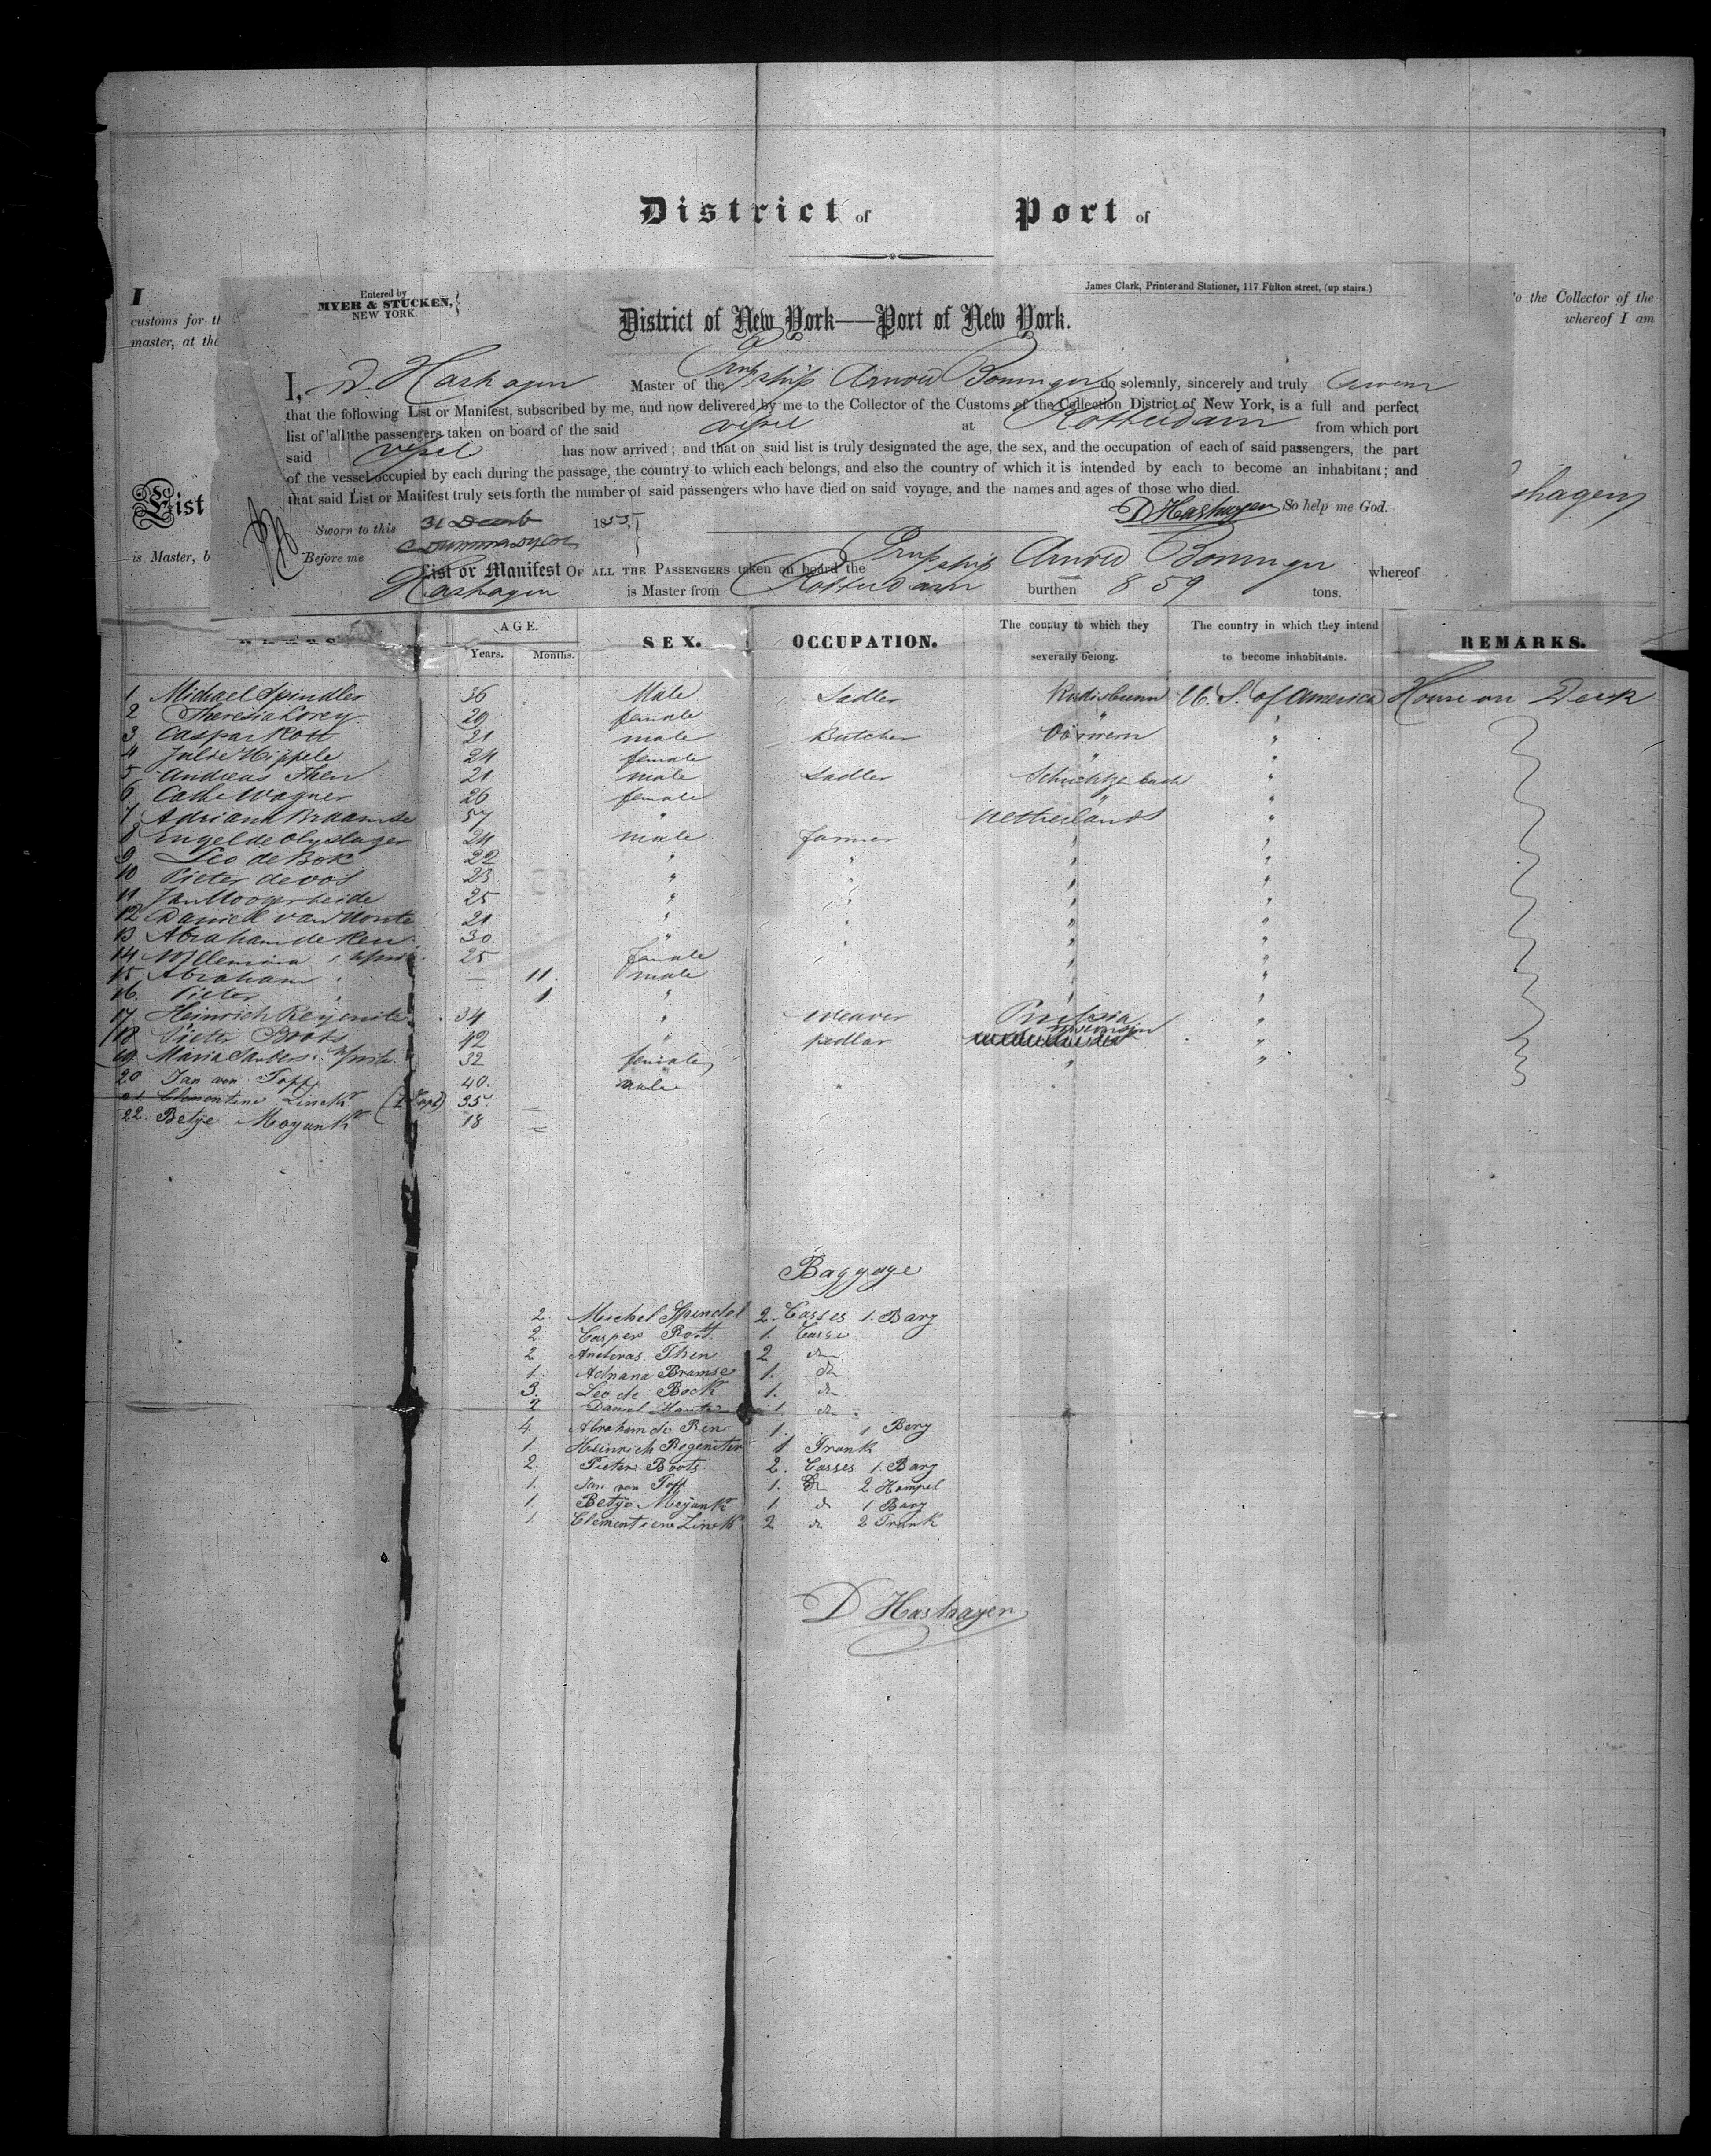 District of Port of
I
customs for th
master, at the
o the Collector of the
whereof I am
List
is Master, b
shagen
Entered by
MYER & STUCKEN,
NEW YORK.
James Clark, Printer and Stationer, 117 Fulton street, (up stairs.)
District of New York—Port of New York.
I, D. Hashagen Master of the Prus ship Arnold Boninger do solemnly, sincerely and truly swear
that the following List or Manifest, subscribed by me, and now delivered by me to the Collector of the Customs of the Collection District of New York, is a full and perfect
list of all the passengers taken on board of the said vessel at Rotterdam from which port
said vessel has now arrived; and that on said list is truly designated the age, the sex, and the occupation of each of said passengers, the part
of the vessel occupied by each during the passage, the country to which each belongs, and also the country of which it is intended by each to become an inhabitant; and
that said List or Manifest truly sets forth the number of said passengers who have died on said voyage, and the names and ages of those who died.
D Hashagen So help me God.
Sworn to this 31 Decemb 1855,
Before me
List or Manifest OF ALL THE PASSENGERS taken on board the Prus ship Arnold Boninger whereof
Hashagen is Master from Rotterdam burthen 859 tons.
NAMES. AGE. Years. Months. SEX. OCCUPATION. The country to which they severally belong. The country in which they intend to become inhabitants. REMARKS.
1 Michael Spindler 36 Male Sadler Radisbunn U. S. of America House on Deck
2 Theresia Lorey 29 female " "
3 Caspar Rott 21 male Butcher "
4 Julie Hippele 24 female " "
5 Andreas Then 21 male Sadler "
6 Cathe Wagner 26 female " "
7 Adriana Braamse 57 " Netherlands "
8 Engel de Olyslager 24 male farmer " "
9 Leo de Bok 22 " " " "
10 Pieter de vos 23 " " " "
11 Jan Moogerheide 25 " " " "
12 Daniel van Houte 21 " " " "
13 Abraham de Ren 30 " " " "
14 Willemina " 25 female " "
15 Abraham " — 11. male " "
16. Pieter " 1 " " "
17 Heinrich Regeniter 34 " weaver Prussia "
18 Pieter Boots 42 " pedlar "
19 Maria 32 female " "
20 Jan von Toff 40. male "
21. Clementine Linck 35. —
22. Betje Moyank 18 —
Baggage
2. Michel Spindel 2. Casses 1. Barg
2. Casper Rott. 1. Casse
2 Andreas. Then 2 do
1. Adriana Bramse 1. do
3. Leo de Bock 1. do
2 Daniel Hauter 1. do
4. Abraham de Ren 1. 1 Berg
1. Heinrich Regeniter 1 Trunk
2. Pieter Boots. 2. Casses 1. Barg
1. Jan von Toff 1. do 2 Hampel
1. Betje Mejank 1 do 1 Barg
1. Clementiene Linck 2 do 2 Trunk
D Hashagen